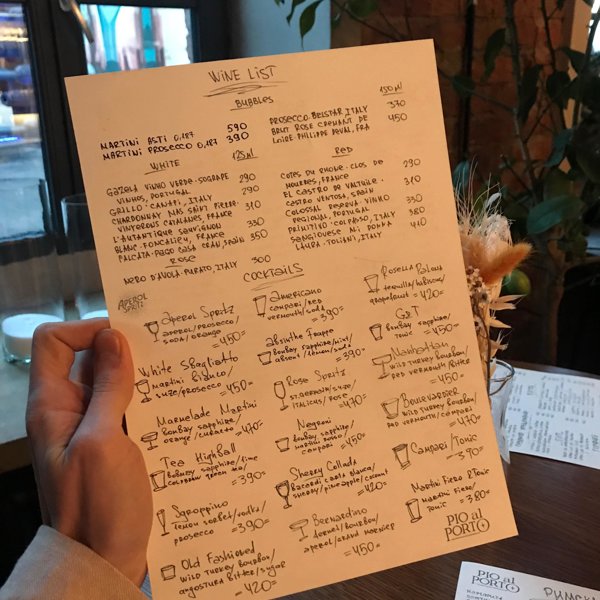 WINE LIST
BUBBLES
MARTINI ASTI 0,187 590
MARTINI PROSECCO 0,187 390
150 ml
PROSECCO. BELSTAR, ITALY 370
BRUT ROSE CREMANT DE 450
LOIRE PHILIPPE DEVAL, FRA
WHITE 125 ml
GAZELA VINHO VERDE. SOGRAPE 290
VINHOS, PORTUGAL
GRILLO. CANAPI, ITALY 290
CHARDONNAY MAS SAINT PIERRE. 310
VINYERONS CATALANES, FRANCE
L'AUTANTIQUE SAUVIGNON 330
BLANC. FONCALIEU, FRANCE
CALCATA. PAGO CASA GRAN, SPAIN 350
ROSE
NERO D'AVOLA. PURATO, ITALY 300
RED
COTES DU RHONE. CLOS DE 290
MOURRES, FRANCE
EL CASTRO DE VALTUILLE. 310
CASTRO VENTOSA, SPAIN
COLOSSAL RESERVA. VINHO 330
REGIONAL, PORTUGAL
PRIMITIVO. COLPASSO, ITALY 380
SANGIOVESE MI DONNA 440
LAURA. TOLIANI, ITALY
COCKTAILS
APEROL
SPRITZ
Aperol Spritz
APEROL/PROSECCO/
SODA/ORANGE
=450=
White Sbagliatto
MARTINI BIANCO/
SUZE/PROSECCO
=450=
Marmelade Martini
BOMBAY SAPPHIRE/
ORANGE/CURATO
=470=
Tea Highball
BOMBAY SAPPHIRE/LIME
COLDBREW GREEN TEA
=390=
Sgroppino
LEMON SORBET/VODKA/
PROSECCO
=390=
Old Fashioned
WILD TURKEY BOURBON/
ANGOSTURA BITTER/SUGAR
=420=
Americano
CAMPARI/RED
VERMOUTH/SODA
=390=
Absinthe Frappe
BOMBAY SAPPHIRE/MINT/
ABSENT/LEMON/SODA
=390=
Rose Spritz
ST.GERMAIN/SUZE/
ITALICUS/ROSE
=470=
Negroni
BOMBAY SAPPHIRE/
MARTINI ROSSO/
CAMPARI
=450=
Sherry Collada
BACARDI CARTA BLANCA/
SHERRY/PINEAPPLE/COCONUT
=420=
Bernardino
FERNET/BOURBON/
APEROL/GRAND MARNIER
=450=
Rosella Paloma
TEQUILA/HIBISCUS/
GRAPEFRUIT
=420=
G&T
BOMBAY SAPPHIRE/
TONIC
=450=
Manhattan
WILD TURKEY BOURBON/
RED VERMOUTH/BITTER
=450=
Boulevardier
WILD TURKEY BOURBON/
RED VERMOUTH/CAMPARI
=470=
Campari/Tonic
=390=
Martini Fiero &Tonic
MARTINI FIERO/
TONIC
=380=
PIO al
PORTO
PIO al
PORTO